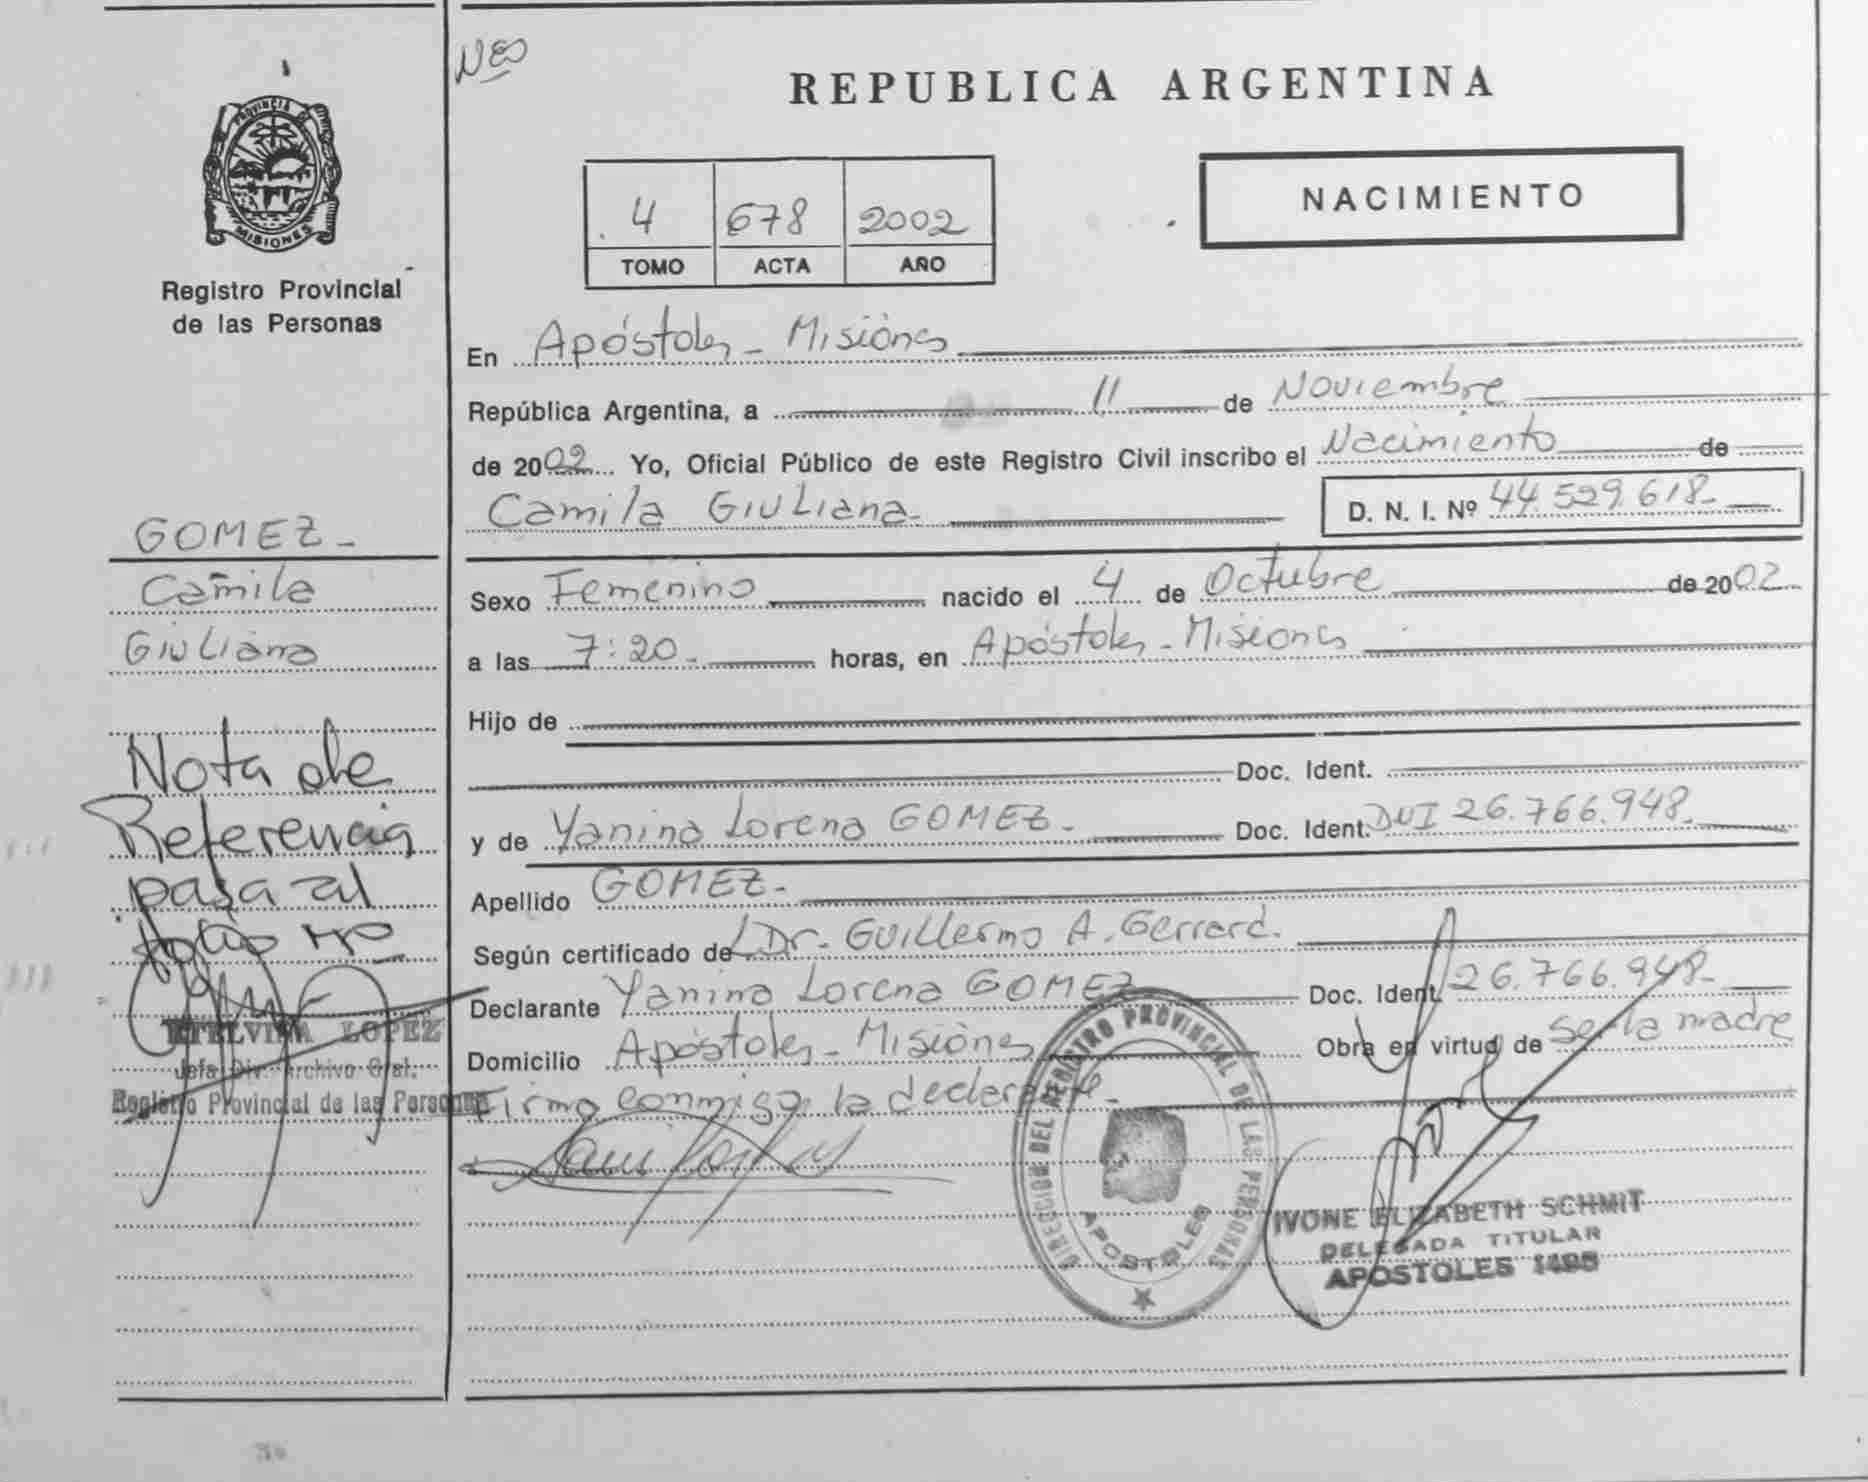 NES
REPUBLICA ARGENTINA
PROVINCIA DE
MISIONES
Registro Provincial
de las Personas
4 678 2002
TOMO ACTA AÑO
NACIMIENTO
En Apóstoles - Misiones
República Argentina, a 11 de Noviembre
de 2002 Yo, Oficial Público de este Registro Civil inscribo el Nacimiento de
Camila Giuliana. D. N. I. Nº 44.529.618-
GOMEZ -
Camila
Giuliana
Sexo Femenino nacido el 4 de Octubre de 2002
a las 7:20. horas, en Apóstoles - Misiones
Hijo de
Doc. Ident.
y de Yanina Lorena GOMEZ. Doc. Ident. DNI 26.766.948.
Apellido GOMEZ.
Según certificado de Dr. Guillermo A. Gerrard.
Declarante Yanina Lorena GOMEZ Doc. Ident. 26.766.948-
Domicilio Apóstoles - Misiones Obra en virtud de ser la madre
Firma conmigo la declarante.
Nota de
Referencia
pasa al
folio Nº
ETELVINA LOPEZ
Jefa Div. Archivo Gral.
Registro Provincial de las Personas
DIRECCION DEL REGISTRO PROVINCIAL DE LAS PERSONAS
APOSTOLES
IVONE ELIZABETH SCHMIT
DELEGADA TITULAR
APOSTOLES